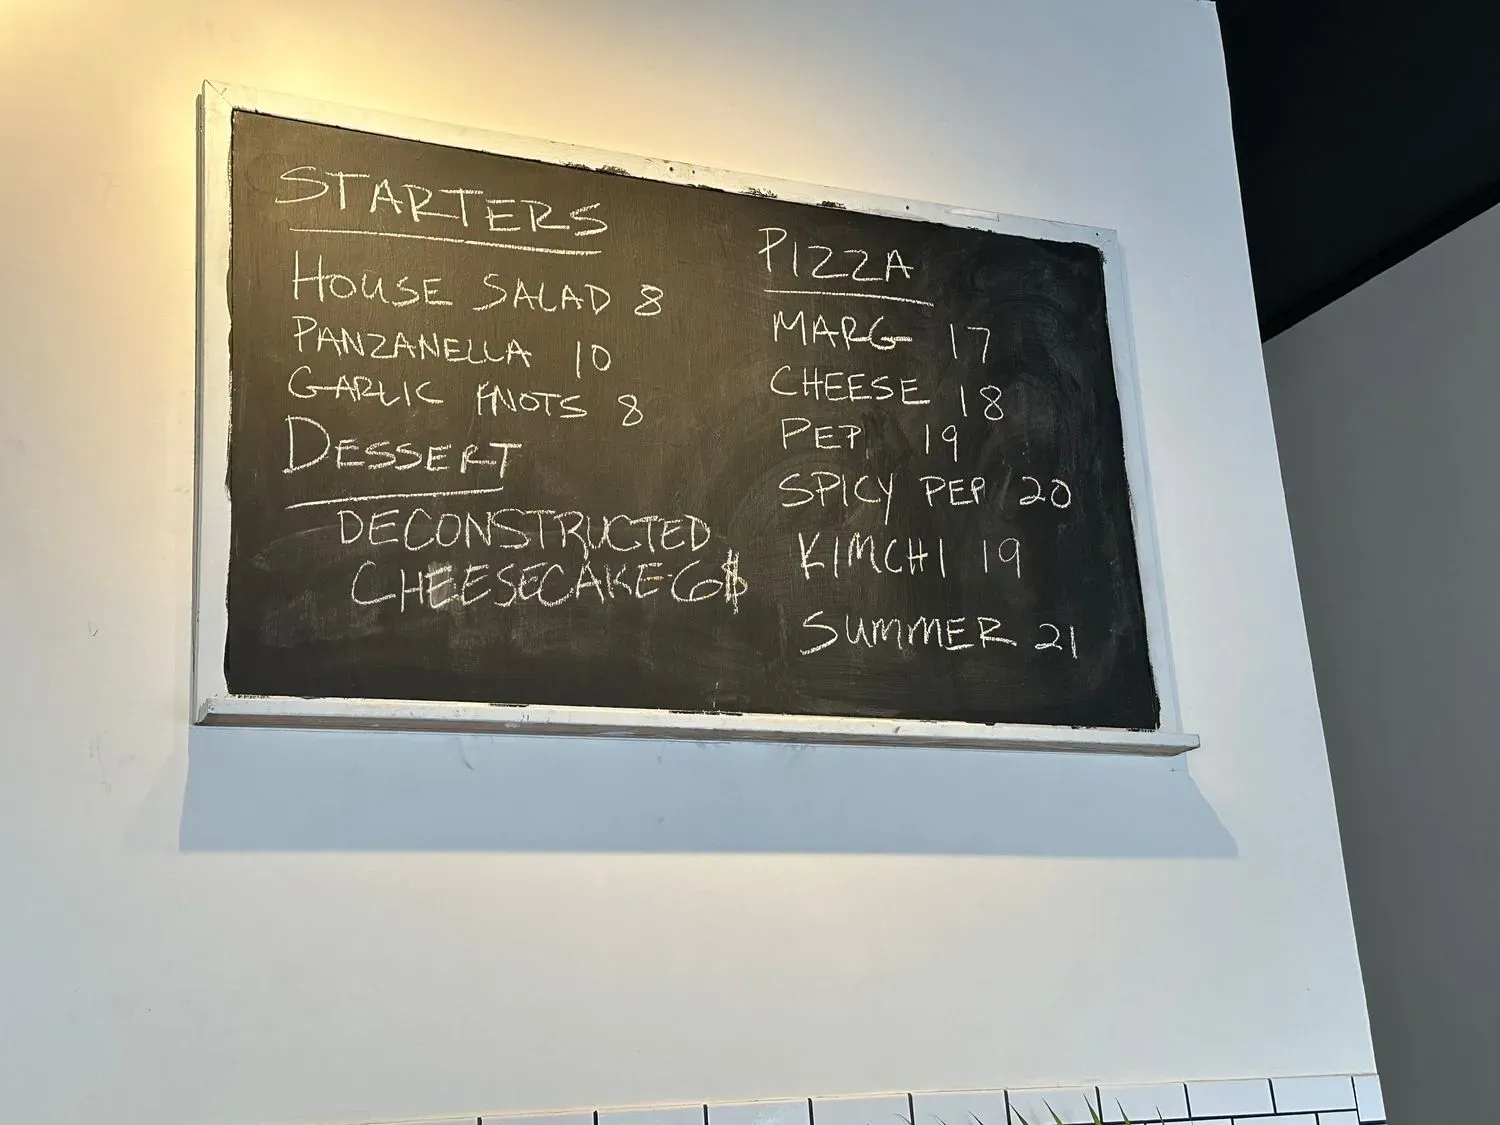 STARTERS
HOUSE SALAD 8
PANZANELLA 10
GARLIC KNOTS 8
DESSERT
DECONSTRUCTED
CHEESECAKE-6$
PIZZA
MARG 17
CHEESE 18
PEP 19
SPICY PEP 20
KIMCHI 19
SUMMER 21